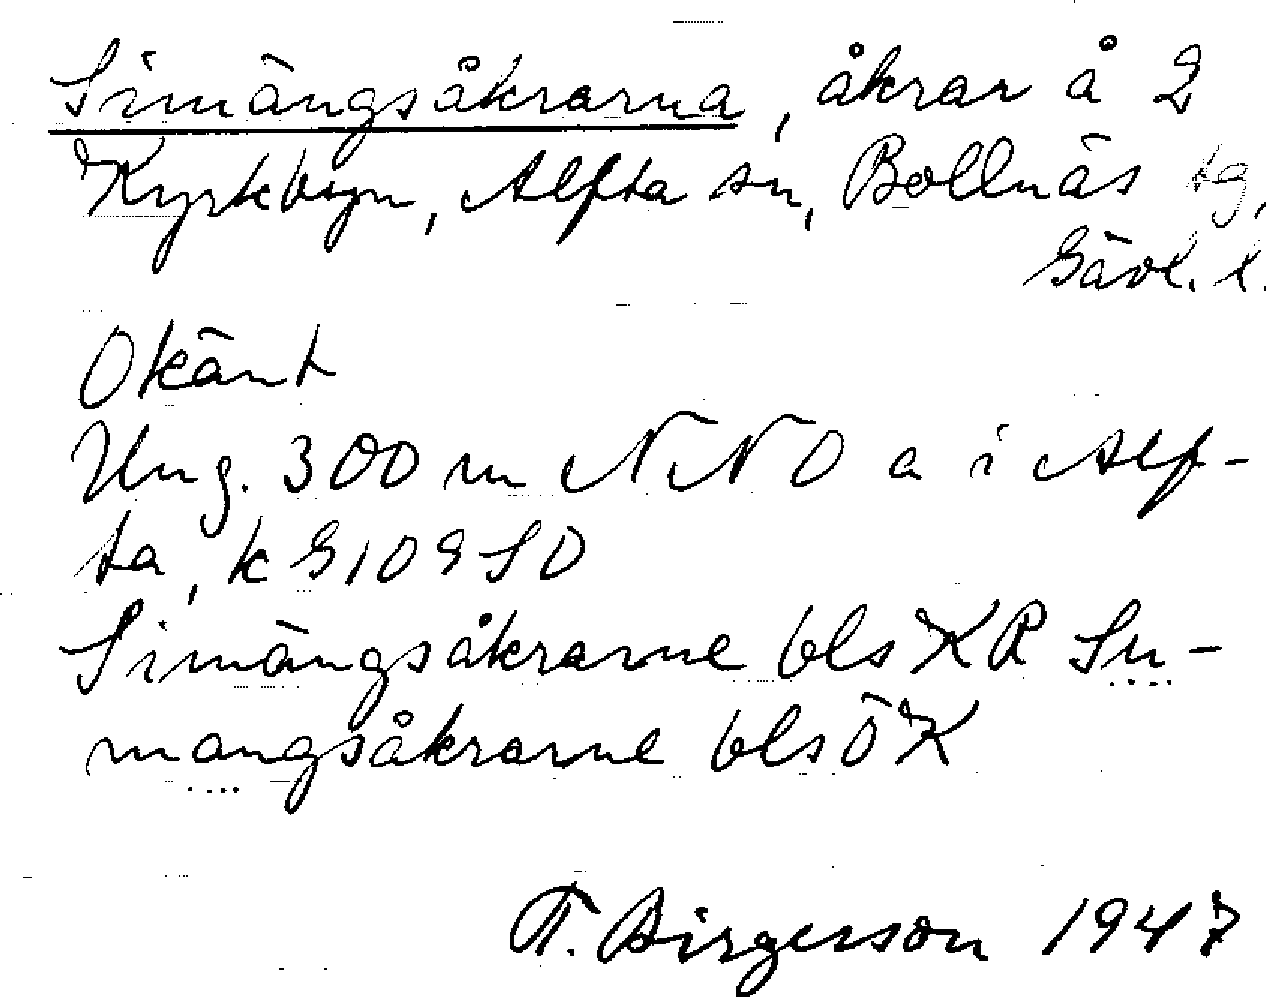 Simängsåkrarna, åkrar å 2
Kyrkbyn, Alfta sn, Bollnäs tg,
Gävl. l.
Okänt
Ung. 300 m NNO a i Alf-
ta, k G10GSO
Simängsåkrarne bls KR Su-
mangsåkrarne bls ÖK
T. Birgerson 1947